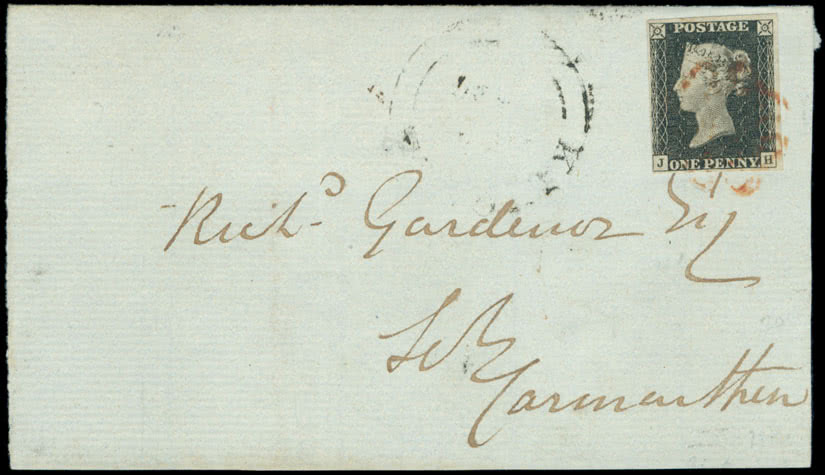 POSTAGE
J H
ONE PENNY
Richd Gardenor Esq
Carmarthen